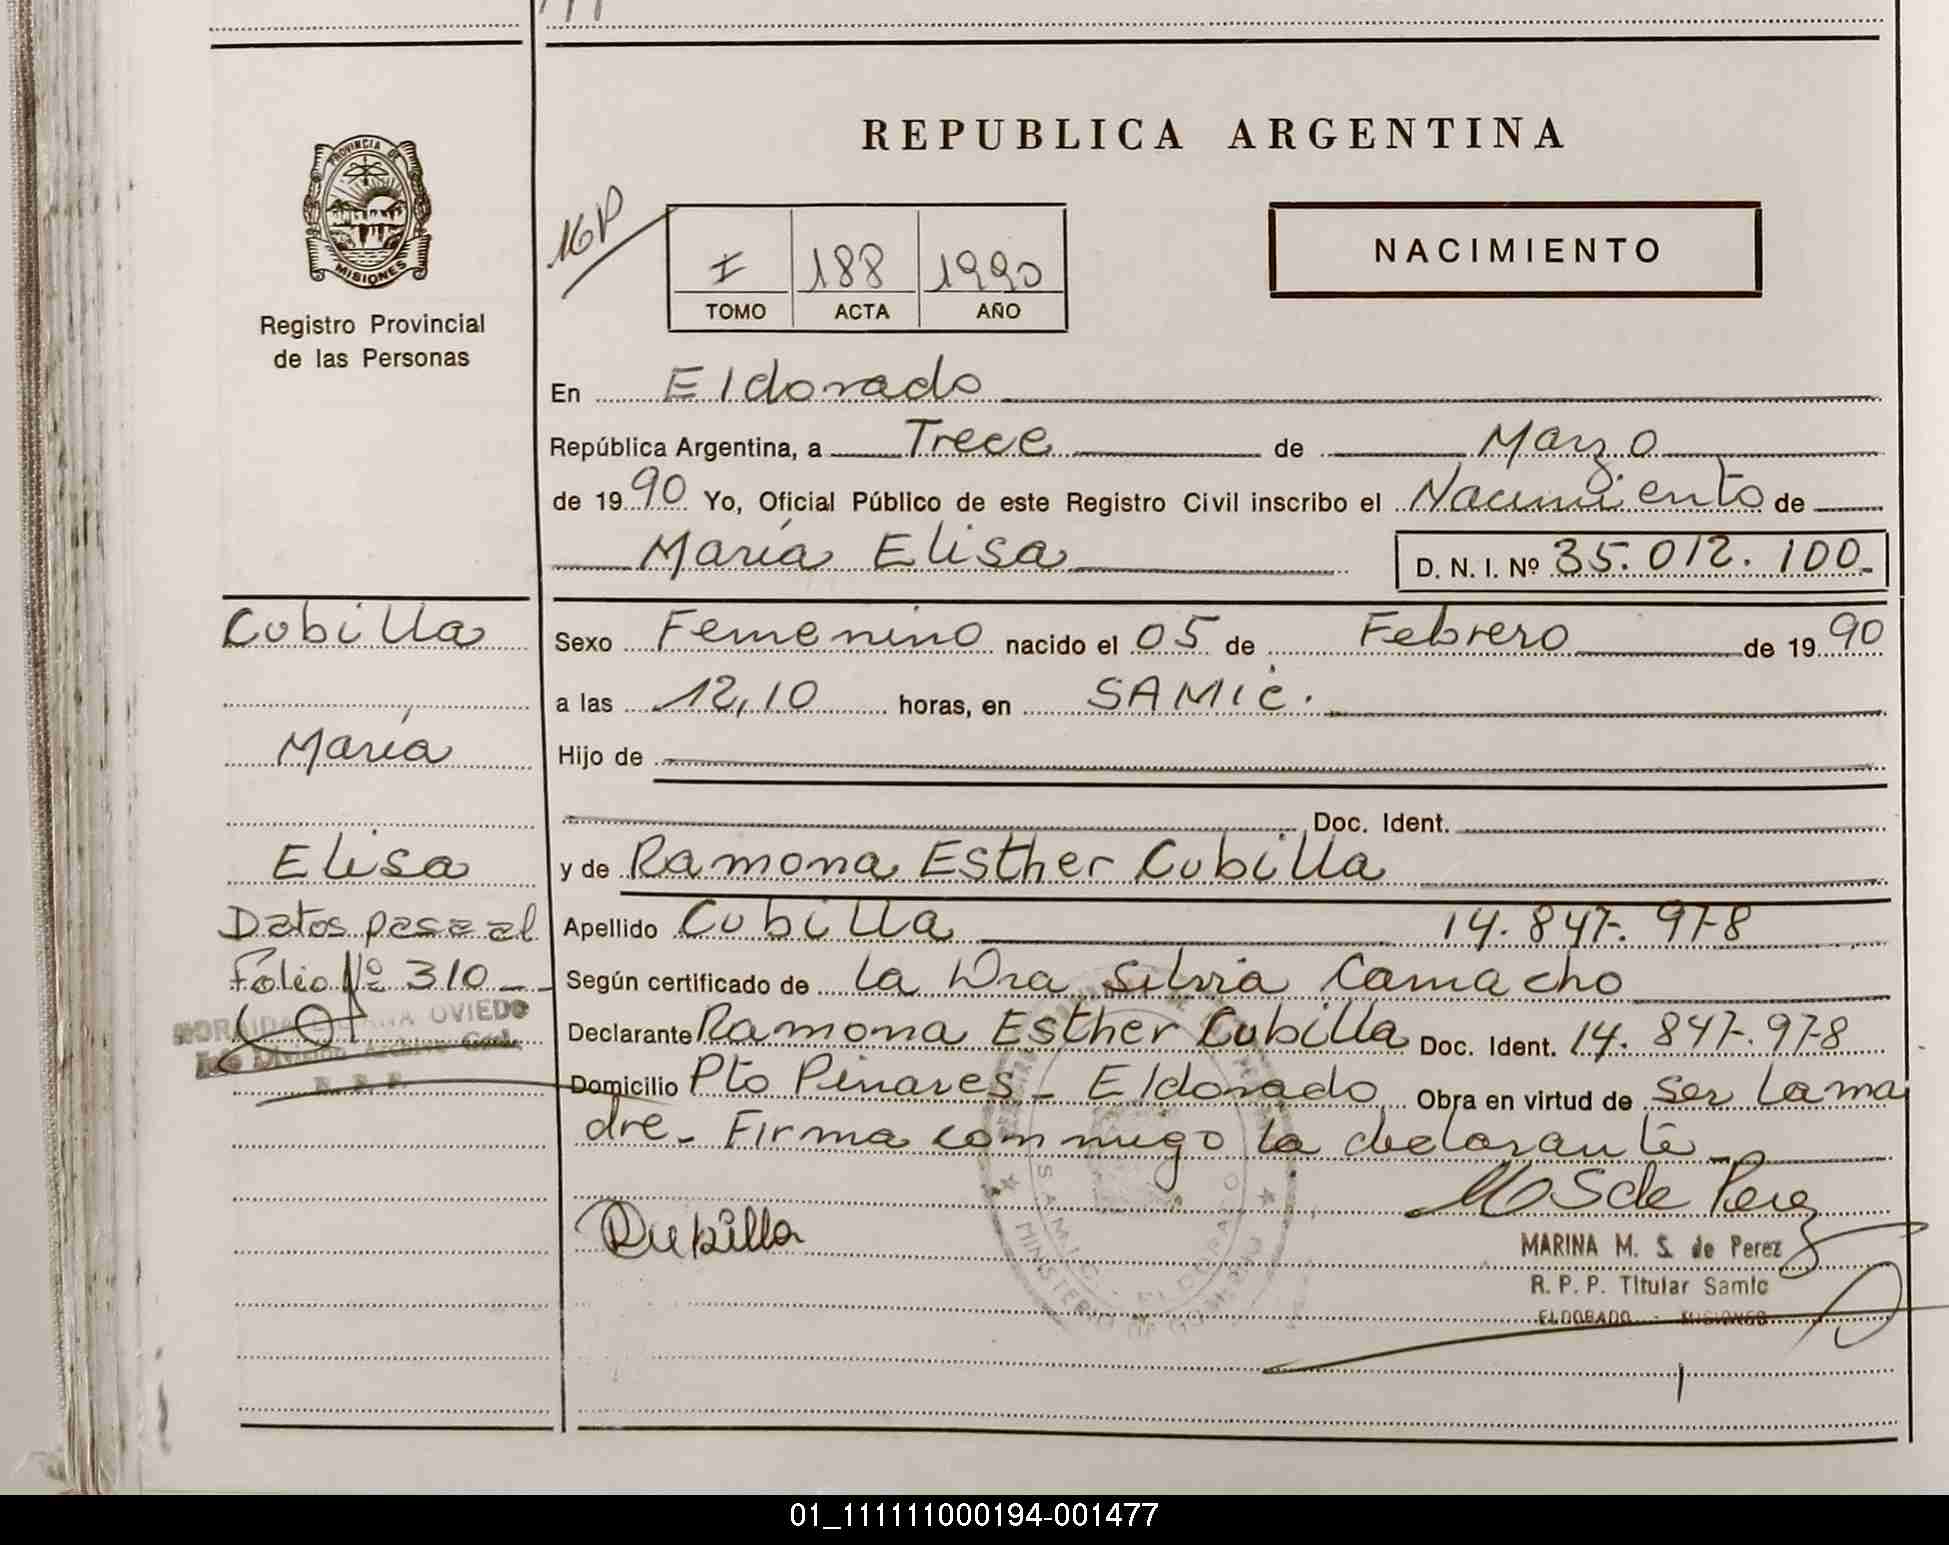 REPUBLICA ARGENTINA
PROVINCIA DE
MISIONES
Registro Provincial
de las Personas
NACIMIENTO
I 188 1990
TOMO ACTA AÑO
En Eldorado
República Argentina, a Trece de Marzo
de 1990 Yo, Oficial Público de este Registro Civil inscribo el Nacimiento de
María Elisa D. N. I. Nº 35.012.100
Cubilla
María
Elisa
Datos pasa al
Folio Nº 310
OVIEDO
Sexo Femenino nacido el 05 de Febrero de 1990
a las 12,10 horas, en SAMIC.
Hijo de
Doc. Ident.
y de Ramona Esther Cubilla
Apellido Cubilla 14.847.978
Según certificado de la Dra Silvia Camacho
Declarante Ramona Esther Cubilla Doc. Ident. 14.847.978
Domicilio Pto Pinares - Eldorado Obra en virtud de ser la ma
dre - Firma conmigo la declarante
SAMIC - ELDORADO
MINISTERIO DE GOBIERNO
M S de Perez
MARINA M. S. de Perez
R. P. P. Titular Samic
ELDORADO - MISIONES
01_111111000194-001477